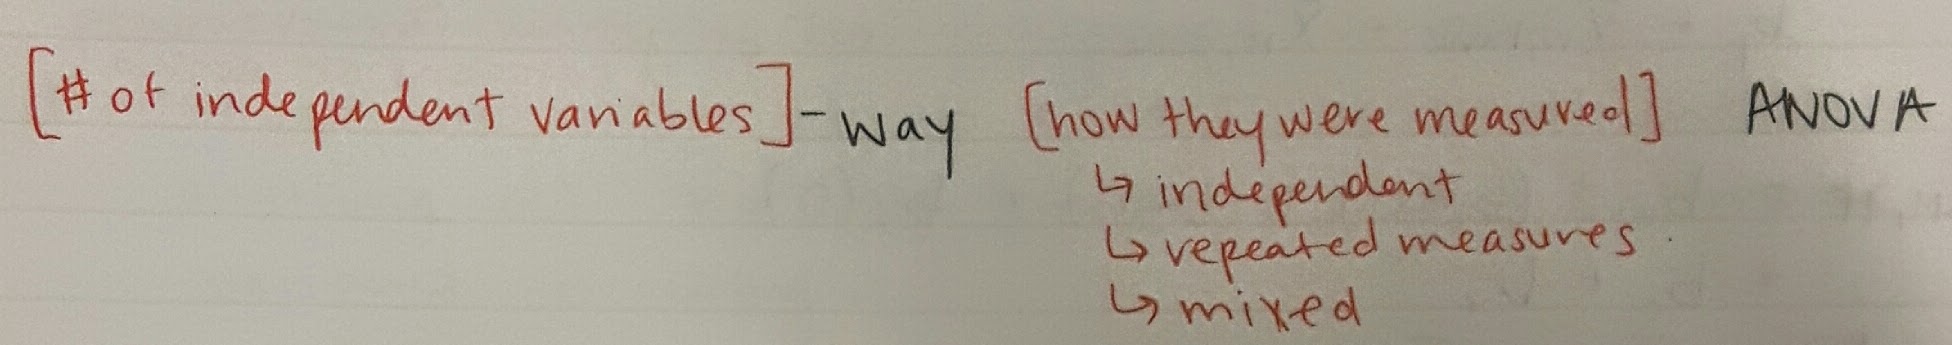 [# of independent variables]-way [how they were measured] ANOVA
↳ independent
↳ repeated measures
↳ mixed